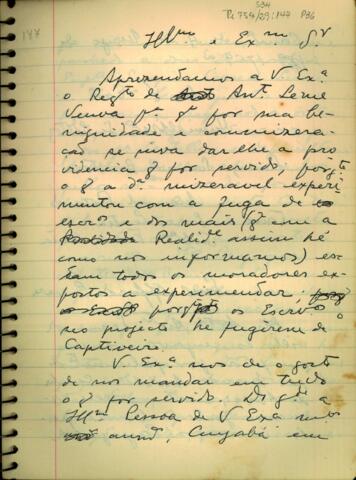 S34
Pc 754/29:144 P36
144
Illmo e Exmo Sr
Aprezentamos a V Exa
o Reqto de Anta Leme
Veuva pa q por sua be-
nignidade e comizera-
ção se sirva dar lhe a pro
videncia q for servido, porqto
o q a da mizeravel experi-
mentou com a fuga de
escros e dos mais (q em a
Realide assim hé
como nos informamos) es-
tam todos os moradores ex-
postos a experimentar,
porqto os Escros
seo projecto he fugirem do
Captiveiro.
V. Exa nos de o gosto
de nos mandar em tudo
o q for servido. Ds gde a
Illma Pessoa de V Exa mtos
anns, Cuyabá em